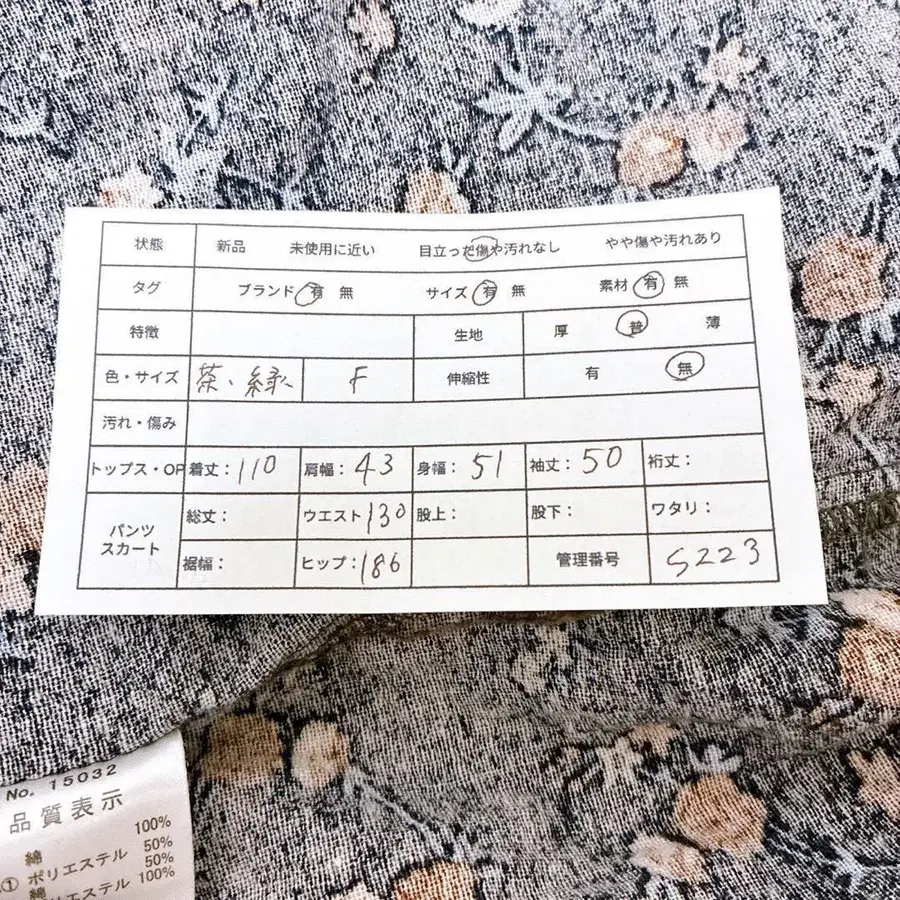 状態 新品 未使用に近い 目立った傷や汚れなし やや傷や汚れあり
タグ ブランド 有 無 サイズ 有 無 素材 有 無
特徴 生地 厚 普 薄
色・サイズ 茶、緑 F 伸縮性 有 無
汚れ・傷み
トップス・OP 着丈：110 肩幅：43 身幅：51 袖丈：50 裄丈：
パンツ スカート
総丈： ウエスト130 股上： 股下： ワタリ：
裾幅： ヒップ：186 管理番号 S223
No. 15032
品質表示
100%
綿 50%
① ポリエステル 50%
綿 100%
リエステル